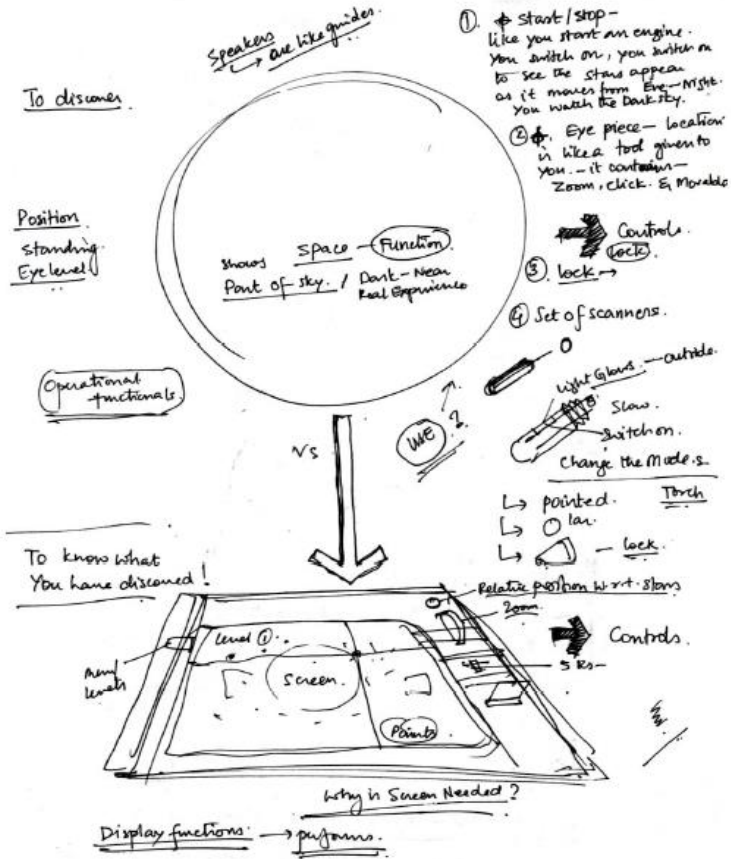 Speakers
are like guides.
To discover
Position
Standing
Eye level
Operational
functionals.
shows space - Function
Part of sky. / Dark-Near
Real Experience
①. Start/stop-
like you start an engine.
You switch on, you switch on
to see the stars appear
as it moves from Eve-Night.
You watch the Dark sky.
② Eye piece - location
is like a tool given to
you. - it contains -
Zoom, click. & Movable
Controls.
lock
③. lock →
④ Set of scanners.
light Glows. - outside.
Slow.
Switch on.
Change the Modes
Torch
↳ pointed.
↳
↳ - lock.
USE ?
Vs
To know what
You have discoured!
Relative position w.r.t. Stars
Zoom
Controls.
5 Rs-
menu
levels
Level ①.
Screen
Points
Why is Screen Needed?
Display functions → performs.